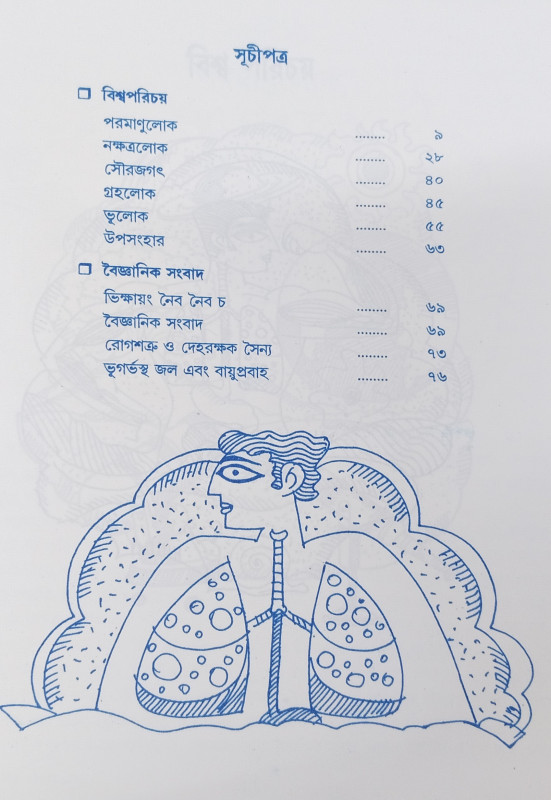 সূচীপত্র
❐ বিশ্বপরিচয়
পরমাণুলোক ........ ৯
নক্ষত্রলোক ........ ২৮
সৌরজগৎ ........ ৪০
গ্রহলোক ........ ৪৫
ভূলোক ........ ৫৫
উপসংহার ........ ৬৩
❐ বৈজ্ঞানিক সংবাদ
ভিক্ষায়ং নৈব নৈব চ ........ ৬৯
বৈজ্ঞানিক সংবাদ ........ ৬৯
রোগশত্রু ও দেহরক্ষক সৈন্য ........ ৭৩
ভূগর্ভস্থ জল এবং বায়ুপ্রবাহ ........ ৭৬